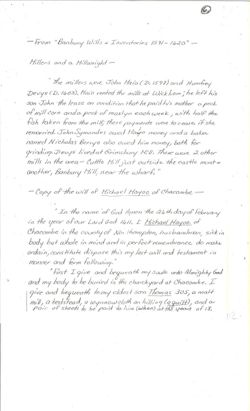 6
- From "Banbury Wills & Inventories 1591 - 1620" -
Millers and a Millwright -
"The millers were John Heirs (D. 1597) and Humfrey
Devys (D. 1603). Heirs rented the mill at Wickham; he left his
son John the lease on condition that he paid his mother a peck
of mill corn and a peck of maslyn each week, with half the
fish taken from the mill; these payments were to cease if she
remarried. John Symandes owed Hayor money and a baker
named Nicholas Devys also owed him money, both for
grinding. Devys lived at Grimsbury Mill. There were 2 other
mills in the area - Cuttle Mill just outside the castle moat -
another, Banbury Mill, near the wharf."
- Copy of the will of Michael Hayoo of Chacombe -
"In the name of God Amen the 26th day of February
in the year of our Lord God 1611. I Michael Hayoo of
Chacombe in the county of Northampton, husbandman, sick in
body, but whole in mind and in perfect remembrance, do make
ordain, constitute dispose this my last will and testament in
manner and form following."
"First I give and bequeath my soule unto Almighty God
and my body to be buried in the churchyard at Chacombe. I
give and bequeath to my eldest son Thomas 30S, a malt
mill, a bedstead, a wainscot cloth an hilling (a quilt), and a
pair of sheets to be paid to him (when) at the years of 18.